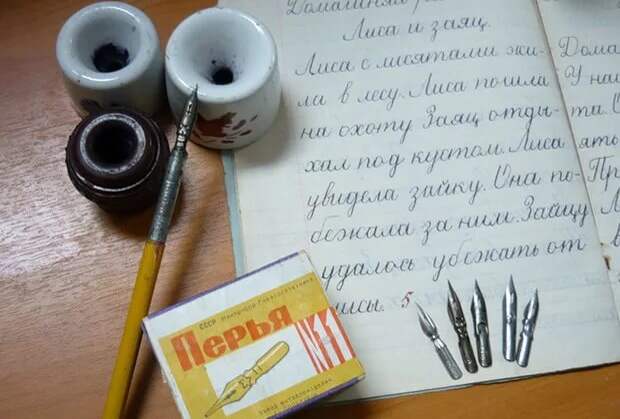 Домашняя
Лиса и заяц.
Лиса с лисятами жи-
ла в лесу. Лиса пошла
на охоту. Заяц отды-
хал под кустом. Лиса
увидела зайку. Она по-
бежала за ним. Зайцу
удалось убежать от
лисы. 5
Дома
У на
та. О
ять
Пр
СССР
Перья
№11